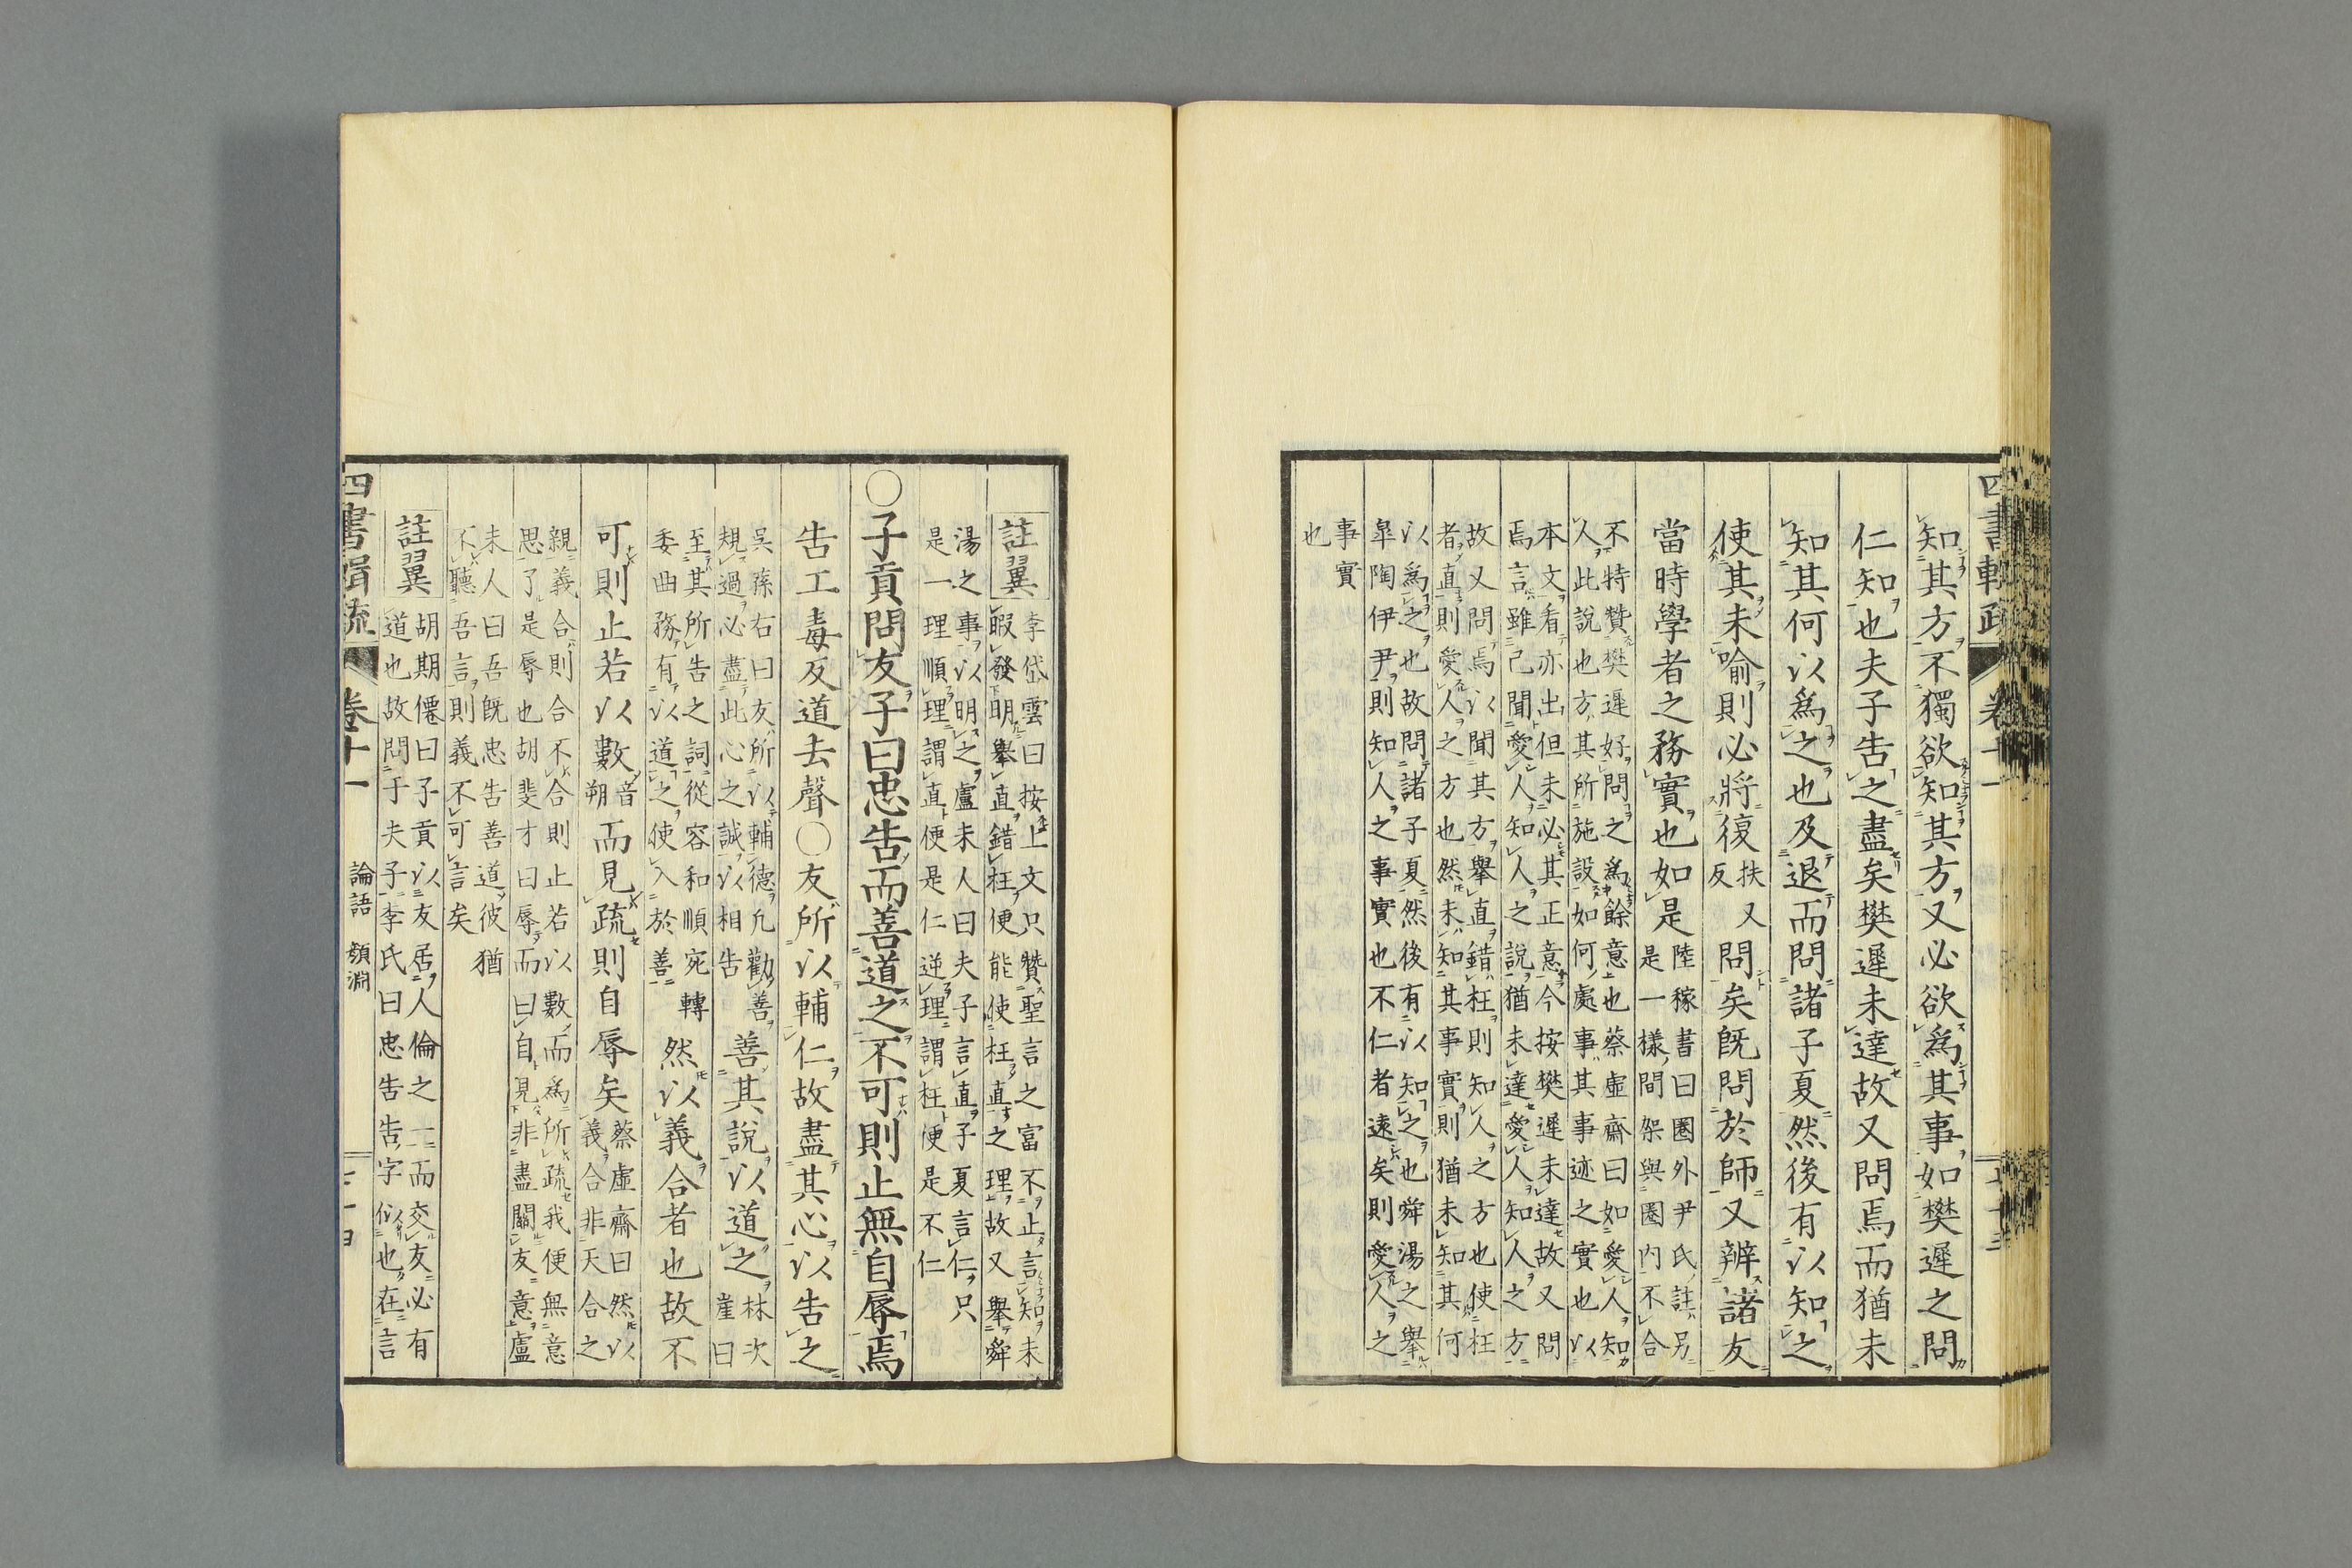 四書輯疏
卷十一
知其方不獨欲知其方又必欲爲其事如樊遲之問
仁知也夫子告之盡矣樊遲未達故又問焉而猶未
知其何以爲之也及退而問諸子夏然後有以知之
使其未喻則必將復扶又反問矣旣問於師又辨諸友
當時學者之務實也如是陸稼書曰圈外尹氏註另
是一樣間架與圈内不合
不特贊樊遲好問之爲餘意也蔡虛齋曰如愛人知
人此說也方其所施設如何處事其事迹之實也以
本文看亦出但未必其正意今按樊遲未達故又問
焉言雖己聞愛人知人之說猶未達愛人知人之方
故又問焉以聞其方舉直錯枉則知人之方也使枉
者直則愛人之方也然未知其事實則猶未知其何
以爲之也故問諸子夏然後有以知之也舜湯之舉
皐陶伊尹則知人之事實也不仁者遠矣則愛人之
事實
也
註翼
李岱雲曰按上文只贊聖言之富不止言知未
暇發明舉直錯枉便能使枉直之理故又舉舜
湯之事以明之盧未人曰夫子言直子夏言仁只
是一理順理謂直便是仁逆理謂枉便是不仁
○子貢問友子曰忠告而善道之不可則止無自辱焉
告工毒反道去聲○友所以輔仁故盡其心以告之
吳蓀右曰友所以輔德凡勸善
規過必盡此心之誠以相告善其說以道之林次崖曰
至其所告之詞從容和順宛轉
委曲務有以道之使入於善然以義合者也故不
可則止若以數音朔而見疏則自辱矣蔡虛齋曰然以
義合非天合之
親義合則合不合則止若以數而爲所疏我便無意
思了是辱也胡斐才曰辱而曰自見非盡關友意盧
未人曰吾旣忠告善道彼猶
不聽吾言則義不可言矣
註翼
胡期僊曰子貢以友居人倫之一而交友必有
道也故問于夫子李氏曰忠告告字似也在言
四書輯疏
卷十一
論語
顏淵